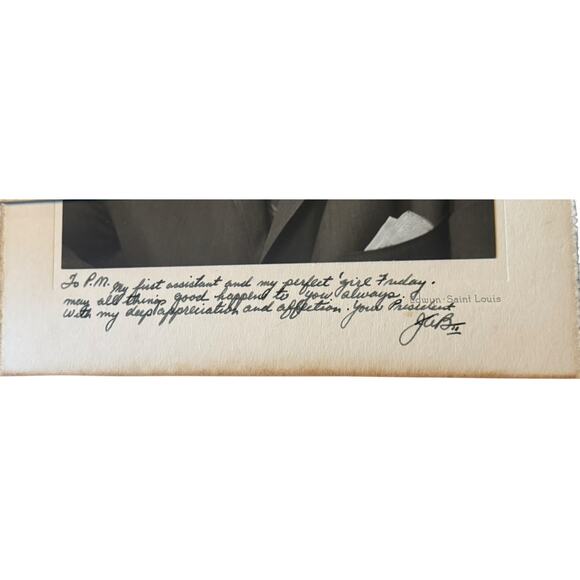 To P.M. My first assistant and my perfect 'girl Friday.
may all things good happen to you always.
With my deep appreciation and affection. Your President
Edwyn · Saint Louis